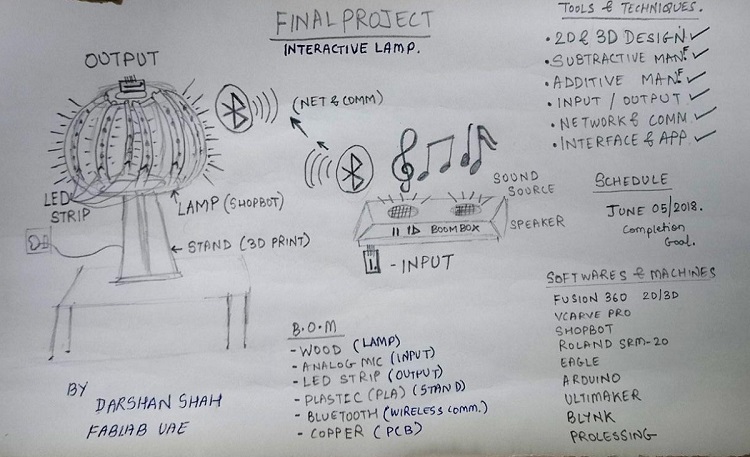 FINAL PROJECT
INTERACTIVE LAMP.
OUTPUT
(NET & COMM)
LED
STRIP
LAMP (SHOPBOT)
STAND (3D PRINT)
SOUND
SOURCE
SPEAKER
BOOMBOX
- INPUT
TOOLS & TECHNIQUES.
• 2D & 3D DESIGN ✓
• SUBTRACTIVE MANF ✓
• ADDITIVE MANF ✓
• INPUT / OUTPUT ✓
• NETWORK & COMM. ✓
• INTERFACE & APP. ✓
SCHEDULE
JUNE 05/2018.
Completion
Goal.
SOFTWARES & MACHINES
FUSION 360 2D/3D
VCARVE PRO
SHOPBOT
ROLAND SRM-20
EAGLE
ARDUINO
ULTIMAKER
BLYNK
PROLESSING
B.O.M
- WOOD (LAMP)
- ANALOG MIC (INPUT)
- LED STRIP (OUTPUT)
- PLASTIC (PLA) (STAND)
- BLUETOOTH (WIRELESS COMM.)
- COPPER (PCB)
BY
DARSHAN SHAH
FABLAB UAE